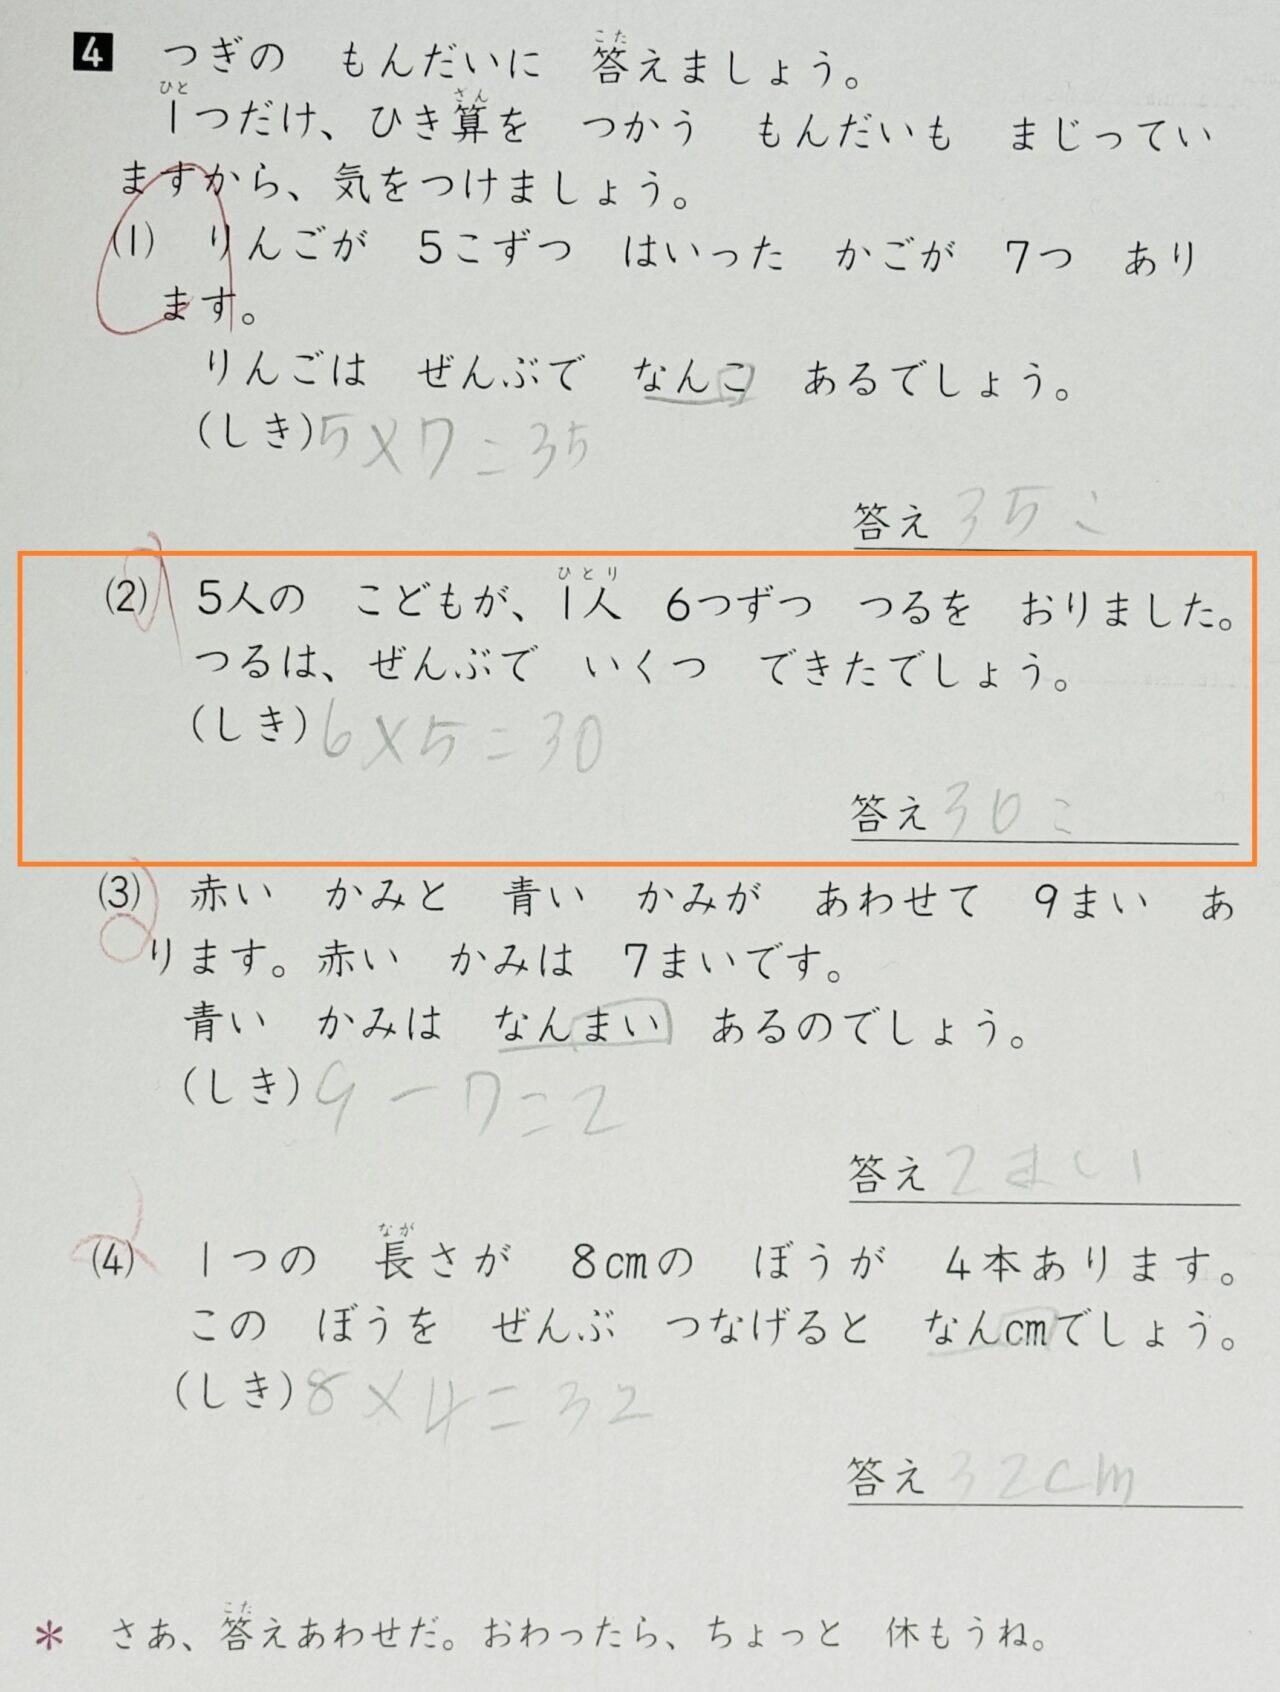 4 つぎの もんだいに 答えましょう。
1つだけ、ひき算を つかう もんだいも まじってい
ますから、気をつけましょう。
(1) りんごが 5こずつ はいった かごが 7つ あり
ます。
りんごは ぜんぶで なんこ あるでしょう。
(しき)5×7=35
答え 35こ
(2) 5人の こどもが、1人 6つずつ つるを おりました。
つるは、ぜんぶで いくつ できたでしょう。
(しき)6×5=30
答え 30こ
(3) 赤い かみと 青い かみが あわせて 9まい あ
ります。赤い かみは 7まいです。
青い かみは なんまい あるのでしょう。
(しき)9-7=2
答え 2まい
(4) 1つの 長さが 8cmの ぼうが 4本あります。
この ぼうを ぜんぶ つなげると なんcmでしょう。
(しき)8×4=32
答え 32cm
* さあ、答えあわせだ。おわったら、ちょっと 休もうね。